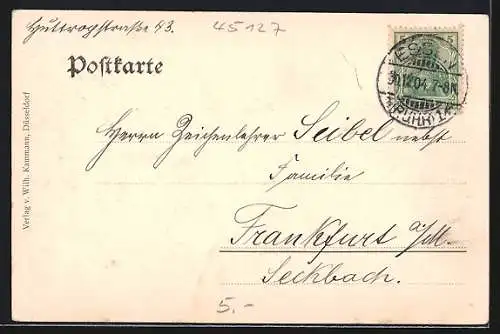 Huttropstraße 43.
45127
Postkarte
5
ESSEN
30.12.04. 7-8N
(RUHR)
Herrn Zeichenlehrer Seibel nebst
Familie
Frankfurt a/M.
Seckbach.
5.-
Verlag v. Wilh. Kammann, Düsseldorf